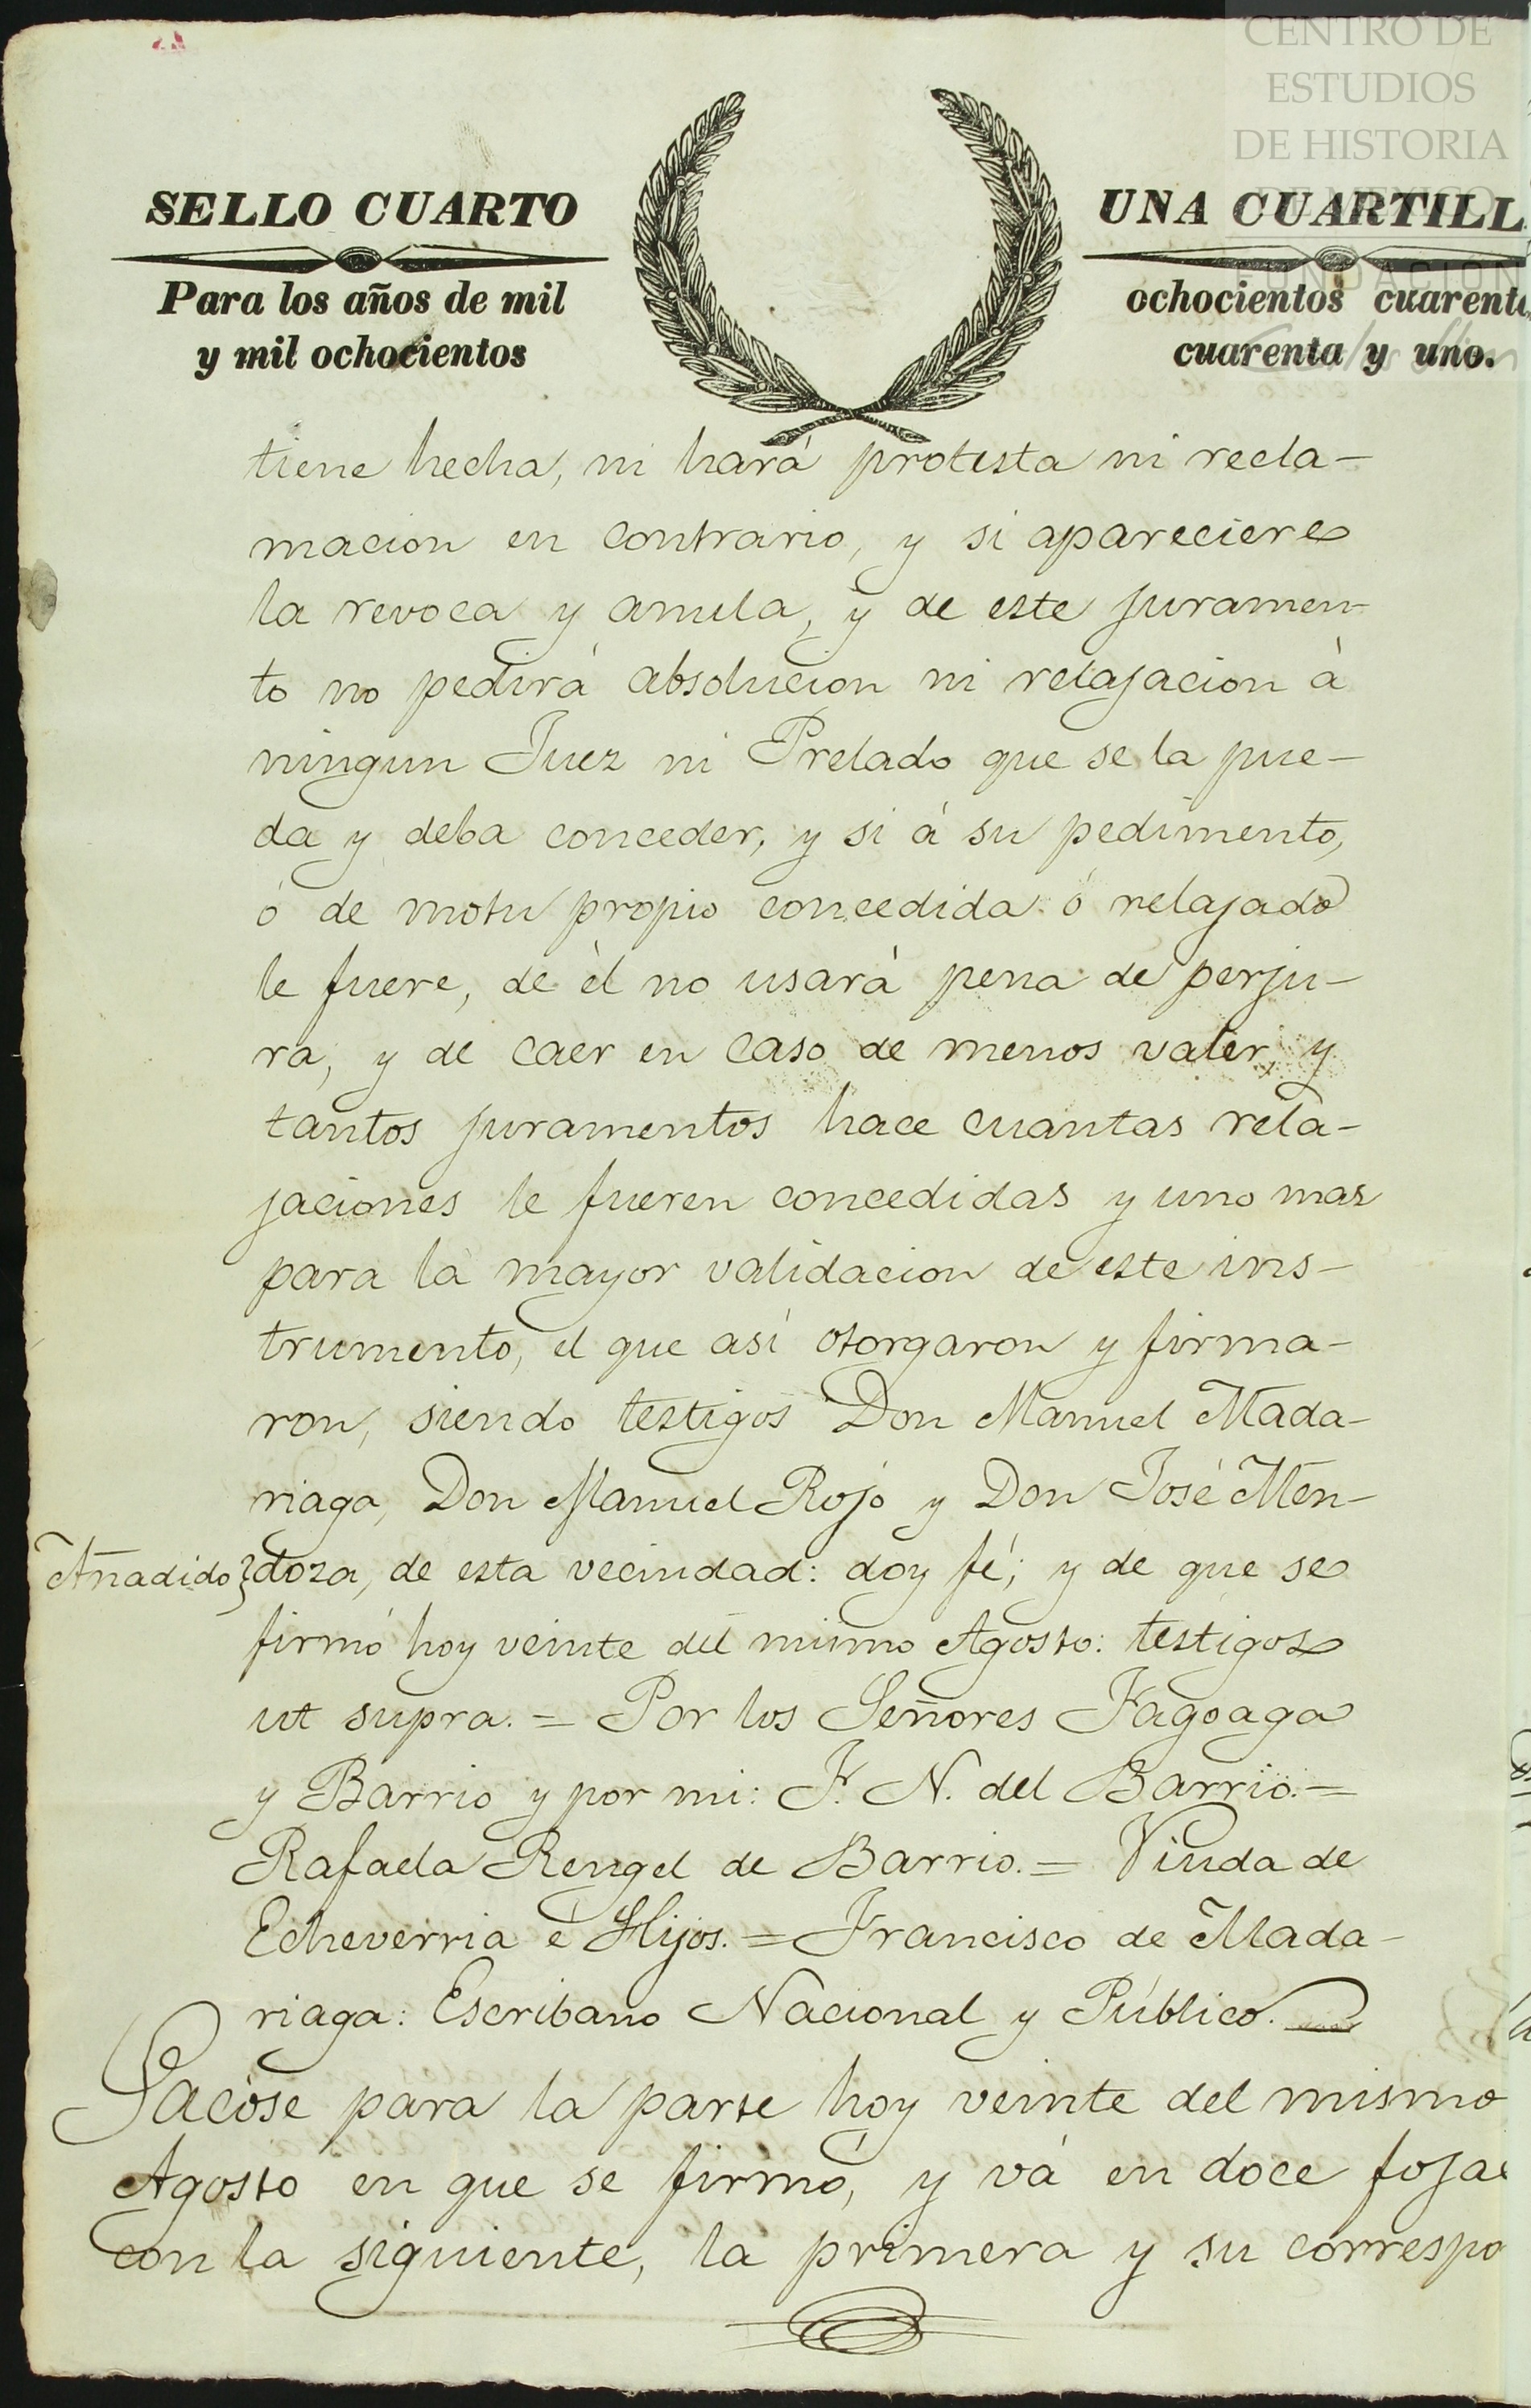 CENTRO DE
ESTUDIOS
DE HISTORIA
DE MÉXICO
FUNDACIÓN
Carlos Slim
SELLO CUARTO
UNA CUARTILL
Para los años de mil
ochocientos cuarenta
y mil ochocientos
cuarenta y uno.
tiene hecha, ni hará protesta ni recla-
macion en contrario, y si apareciere
la revoca y anula, y de este juramen-
to no pedirá absolucion ni relajacion á
ningun Juez ni Prelado que se la pue-
da y deba conceder, y si á su pedimento,
ó de motu propio concedida ó relajado
le fuere, de él no usará pena de perju-
ra, y de caer en caso de menos valer, y
tantos juramentos hace cuantas rela-
jaciones le fueren concedidas y uno mas
para la mayor validacion de este ins-
trumento, el que así otorgaron y firma-
ron, siendo testigos Don Manuel Mada-
riaga, Don Manuel Rojo y Don José Men-
Añadido}doza, de esta vecindad: doy fé; y de que se
firmó hoy veinte del mismo Agosto: testigos
ut supra. = Por los Señores Fagoaga
y Barrio y por mi: F. N. del Barrio. =
Rafaela Rengel de Barrio. = Viuda de
Echeverria é Hijos. = Francisco de Mada-
riaga: Escribano Nacional y Público.
Sacóse para la parte hoy veinte del mismo
Agosto en que se firmó, y vá en doce fojas
con la siguiente, la primera y su correspo